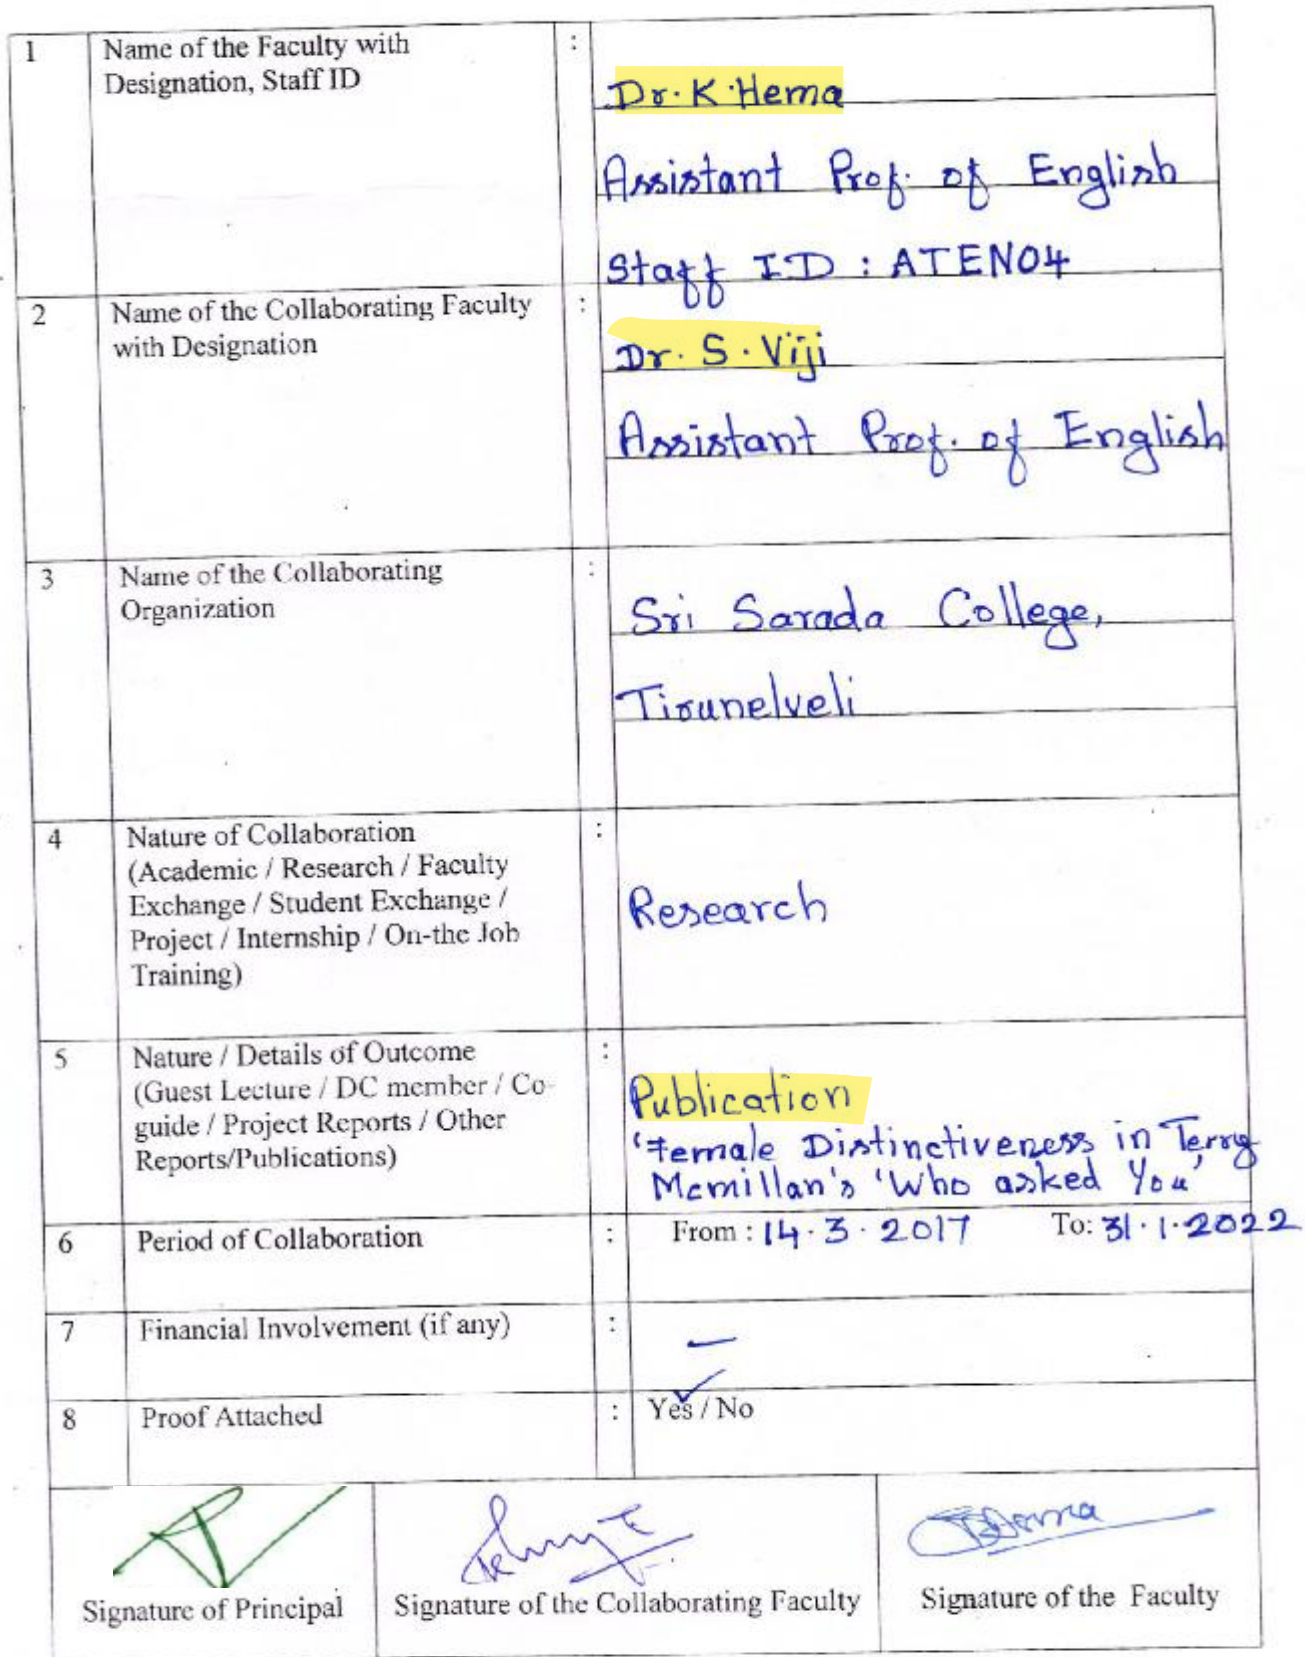 1 Name of the Faculty with : 
Designation, Staff ID
Dr. K. Hema
Assistant Prof. of English
Staff ID : ATEN04
2 Name of the Collaborating Faculty :
with Designation
Dr. S. Viji
Assistant Prof. of English
3 Name of the Collaborating :
Organization
Sri Sarada College,
Tirunelveli
4 Nature of Collaboration :
(Academic / Research / Faculty
Exchange / Student Exchange /
Project / Internship / On-the Job
Training)
Research
5 Nature / Details of Outcome :
(Guest Lecture / DC member / Co-
guide / Project Reports / Other
Reports/Publications)
Publication
'Female Distinctiveness in Terry
Mcmillan's 'Who asked You'
6 Period of Collaboration : From : 14.3.2017 To: 31.1.2022
7 Financial Involvement (if any) : –
8 Proof Attached : Yes / No
Signature of Principal
Signature of the Collaborating Faculty
Signature of the Faculty